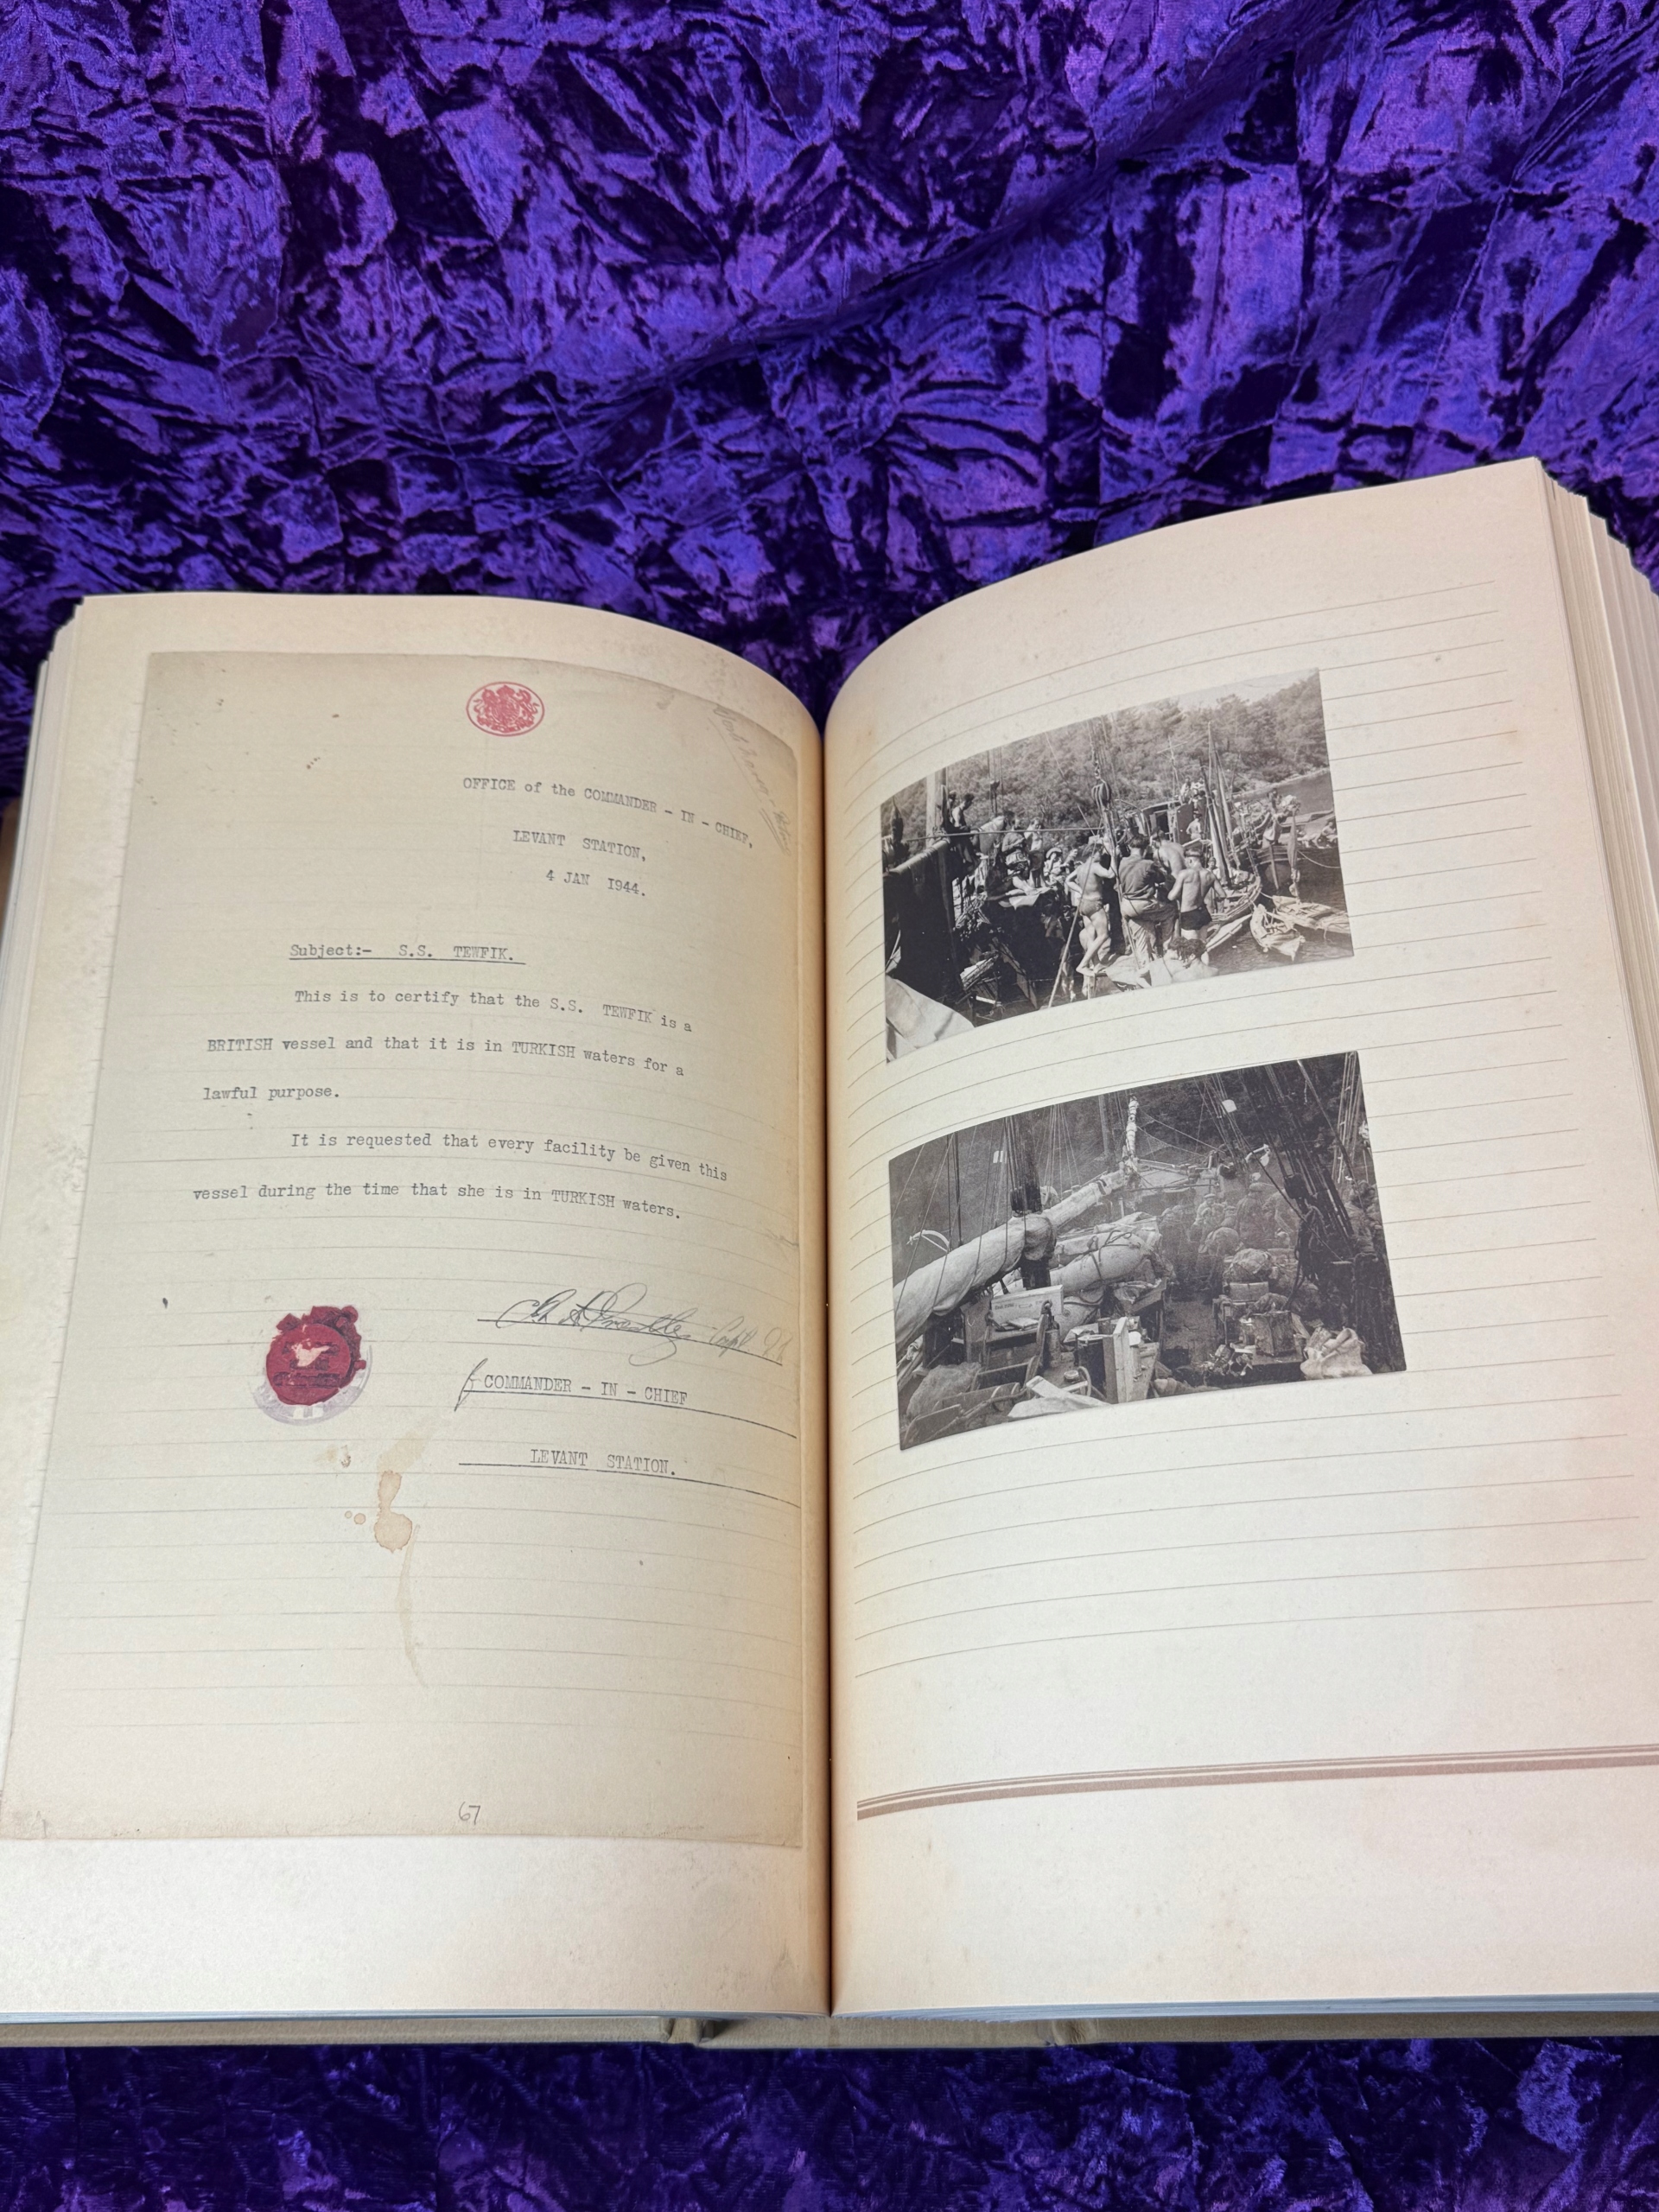 OFFICE of the COMMANDER - IN - CHIEF,
LEVANT STATION,
4 JAN 1944.
Subject:- S.S. TEWFIK.
This is to certify that the S.S. TEWFIK is a
BRITISH vessel and that it is in TURKISH waters for a
lawful purpose.
It is requested that every facility be given this
vessel during the time that she is in TURKISH waters.
Capt
f COMMANDER - IN - CHIEF
LEVANT STATION.
67